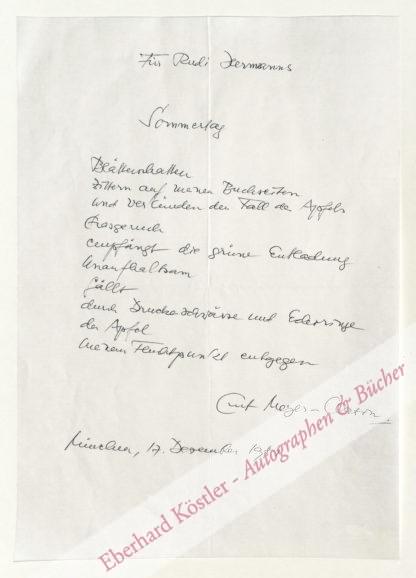 Für Rudi Hermanns
Sommertag
Blätterschatten
zittern auf meinen Buchseiten
und verkünden den Fall des Apfels
Grasgeruch
empfängt die grüne Entladung
Unaufhaltsam
fällt
durch Druckerschwärze und
der Apfel
meinem entgegen
Curt Meyer-Clason
München, 17. Dezember
Eberhard Köstler - Autographen & Bücher